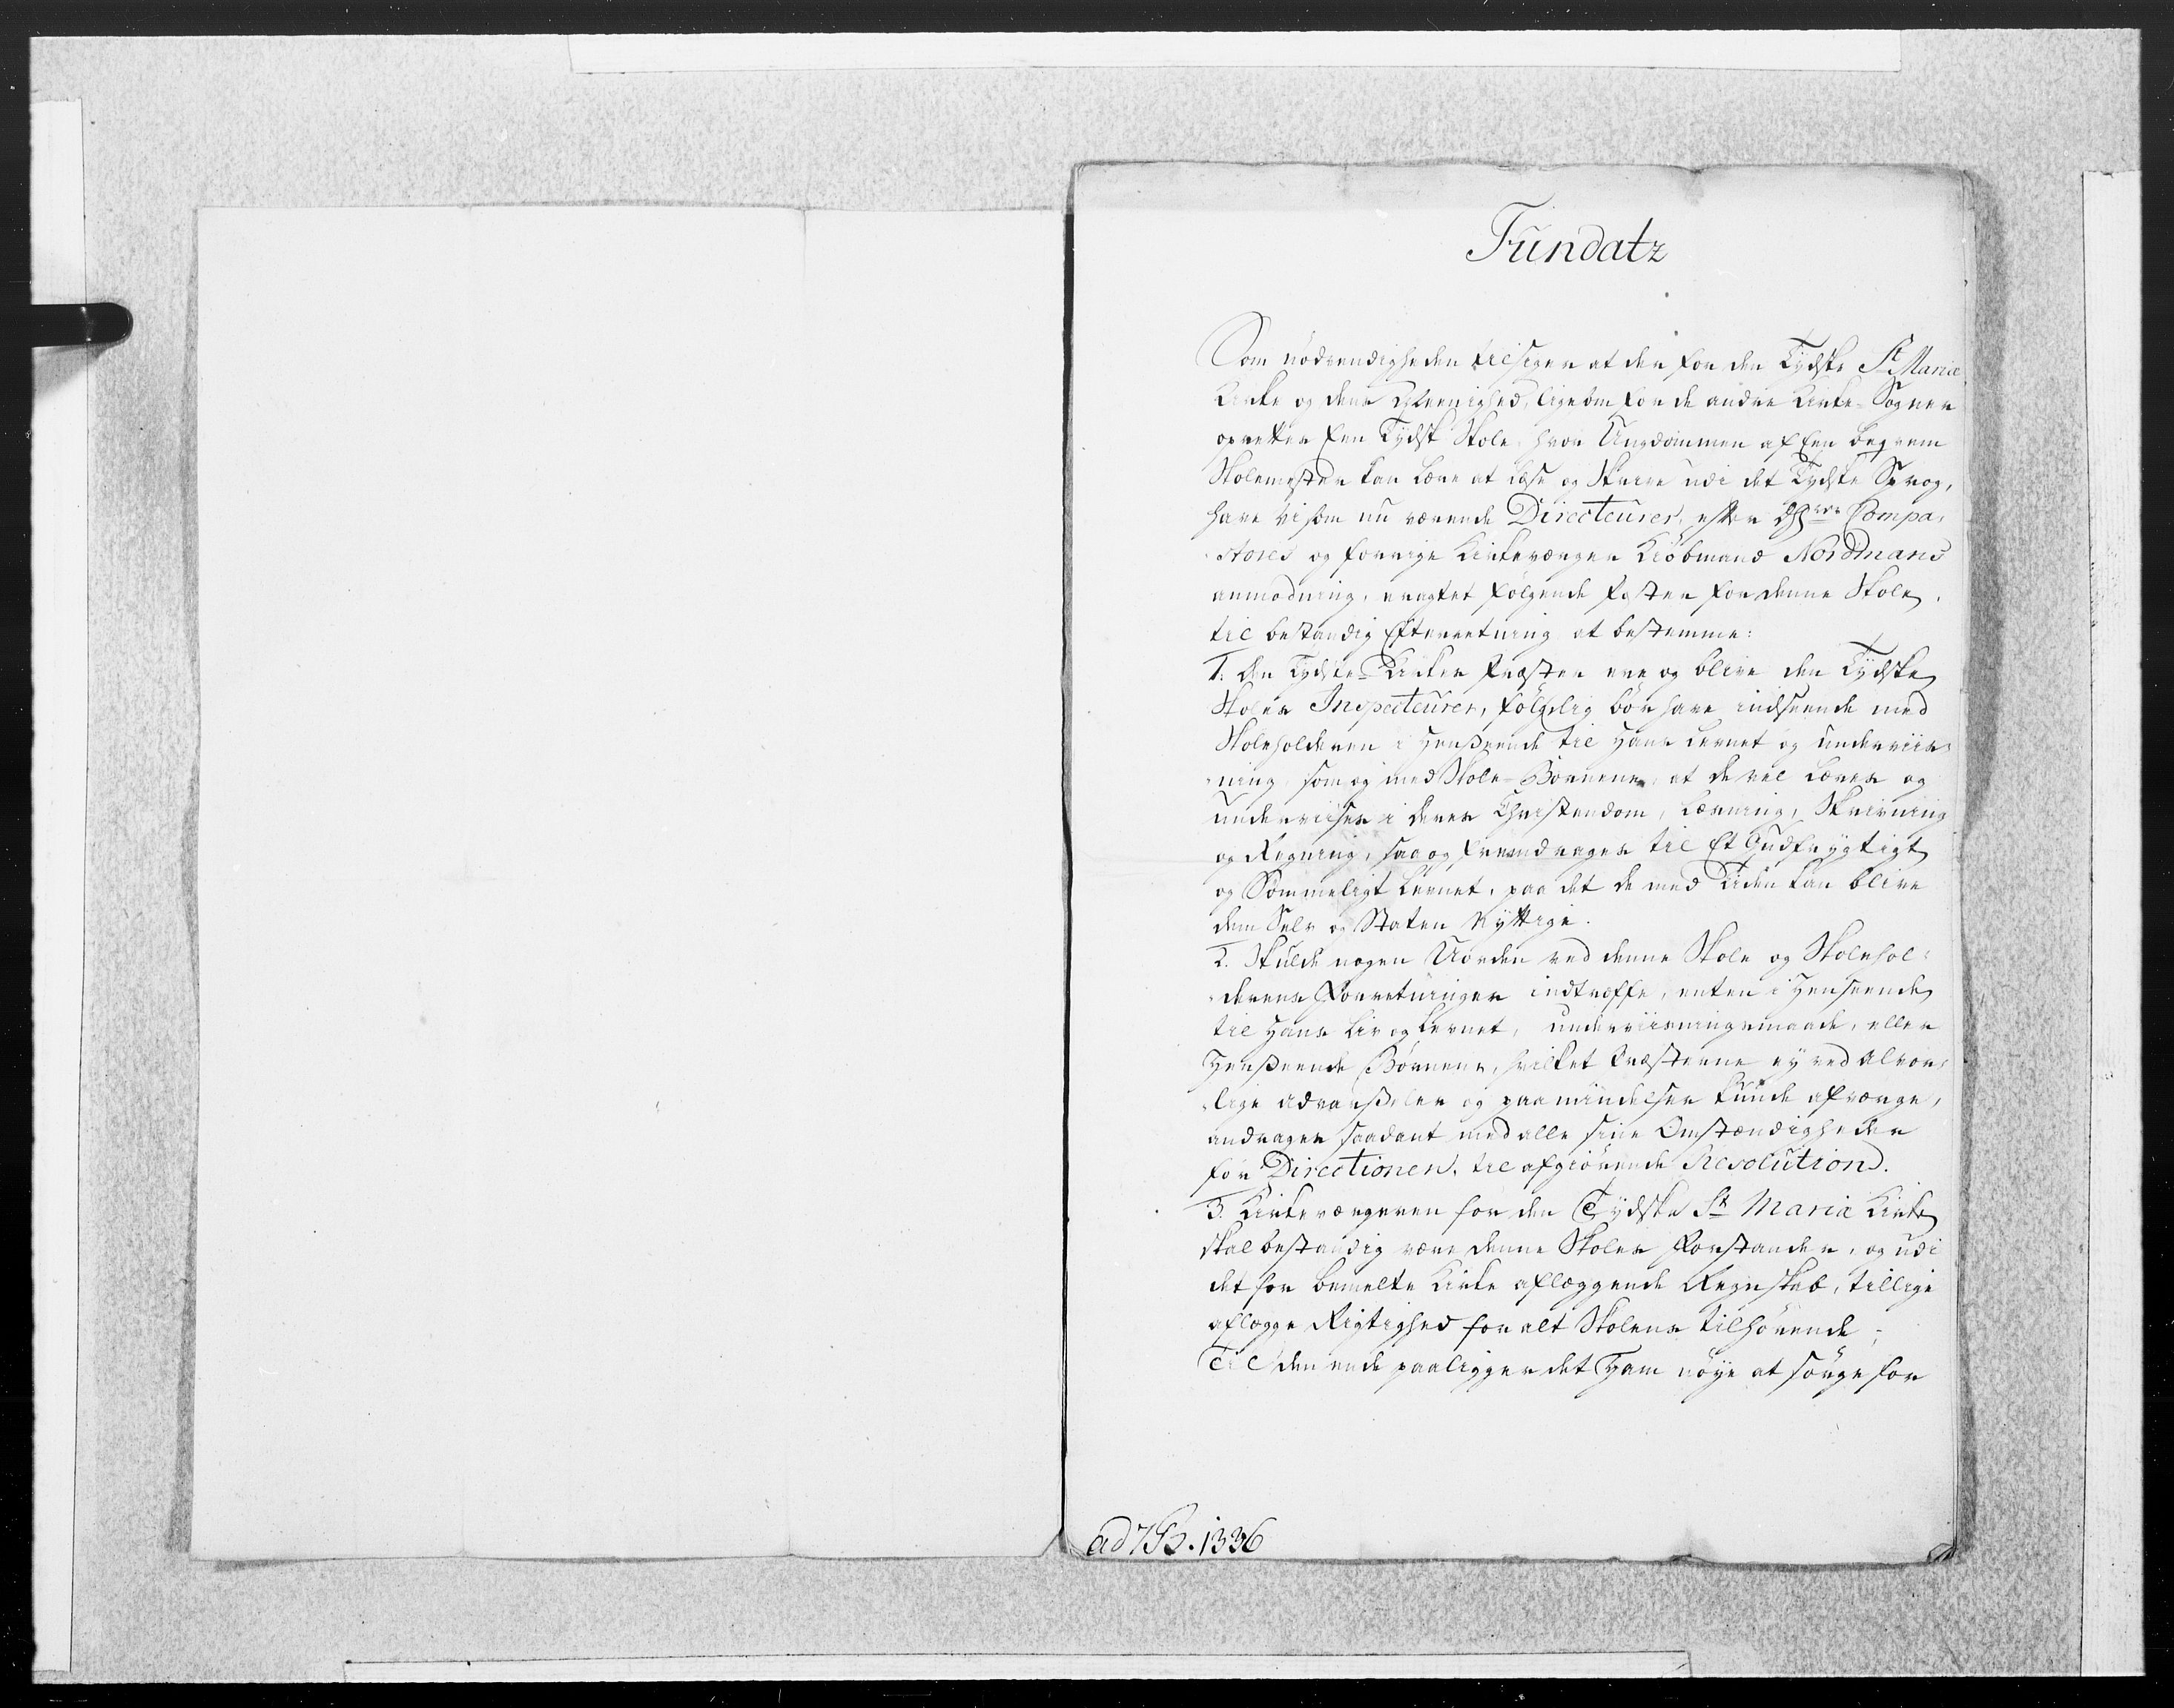 Fundatz
Som nödvendigheden tilsiger at der for den Tydske St Mariæ
Kirke og dens Meenighed, ligesom for de andre Kirke-Sogner
oprettes Een Tydsk Skole, hvor Ungdommen af Een beqvem
Skolemester kan lære at læse og Skrive udi det Tydske Sprog,
have vi som nu værende Directeurer, efter Compa-
stores og forrige Kirkeværger Kiöbmand Nordmans
anmodning, eragtet fölgende Poster for denne Skole,
til bestandig Efterretning at bestemme:
1. Den Tydske Kirkes Præster ere og blive den Tydske
Skoles Inspecteurer, fölgelig bör have indseende med
Skoleholderen i Henseende til Hans Levnet og underviis-
ning, som og med Skole-Börnene, at de vel læres og
underviises i deres Christendom, Læsning, Skrivning
og Regning, saa og fremdrages til Et Gudfrygtigt
og Sömmeligt Levnet, paa det de med Tiden kan blive
dem Selv og Staten Nyttige.
2. Skulde nogen Uorden ved denne Skole og Skolehol-
derens Forretninger indtræffe, enten i Henseende
til Hans Liv og Levnet, underviisningsmaade, eller
Henseende Börnene, hvilket Præsterne ey ved alvor-
lige advarseler og paamindelser kunde afværge,
andrages saadant med alle sine Omstændigheder
for Directionen, til afgiörende Resolution.
3. Kirkeværgeren for den Tydske St Mariæ Kirke
skal bestandig være denne Skoles Forstander, og udi
det for bemelte Kirke aflæggende Regnskab, tillige
aflægge Rigtighed for alt Skolens tilhörende;
Til den ende paaligger det Ham nöye at sörge for
ad 7B. 1336